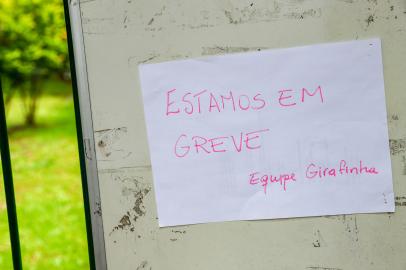 ESTAMOS EM
GREVE
Equipe Girafinha